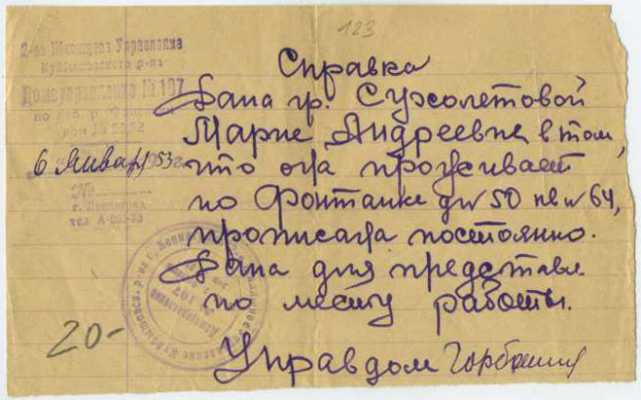 123
2-ое Жилищное Управление
Куйбышевского р-на
Домоуправление № 197
6 Января 1953 г.
№
г. Ленинград
Справка
Дана гр. Сухолетовой
Марие Андреевне в том,
что она проживает
по Фонтанке д № 50 кв № 64,
прописана постоянно.
Дана для представл
по месту работы.
20-
Управдом